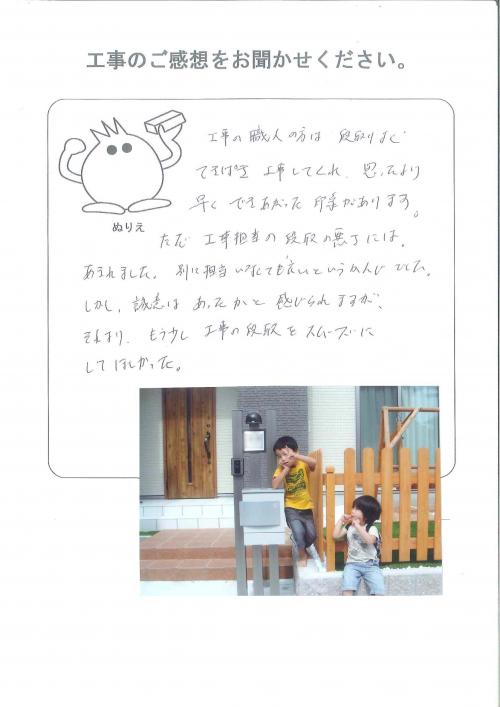 工事のご感想をお聞かせください。
工事の職人の方は 段取りよく
てきぱき 工事してくれ、思ったより
早く できあがった 印象があります。
ぬりえ
ただ 工事担当の 段取の悪さには、
あきれました。別に担当いなくても良いというかんじ でした。
しかし、誠意は あったかと 感じられますが、
それより、もう少し 工事の段取を スムーズに
して ほしかった。